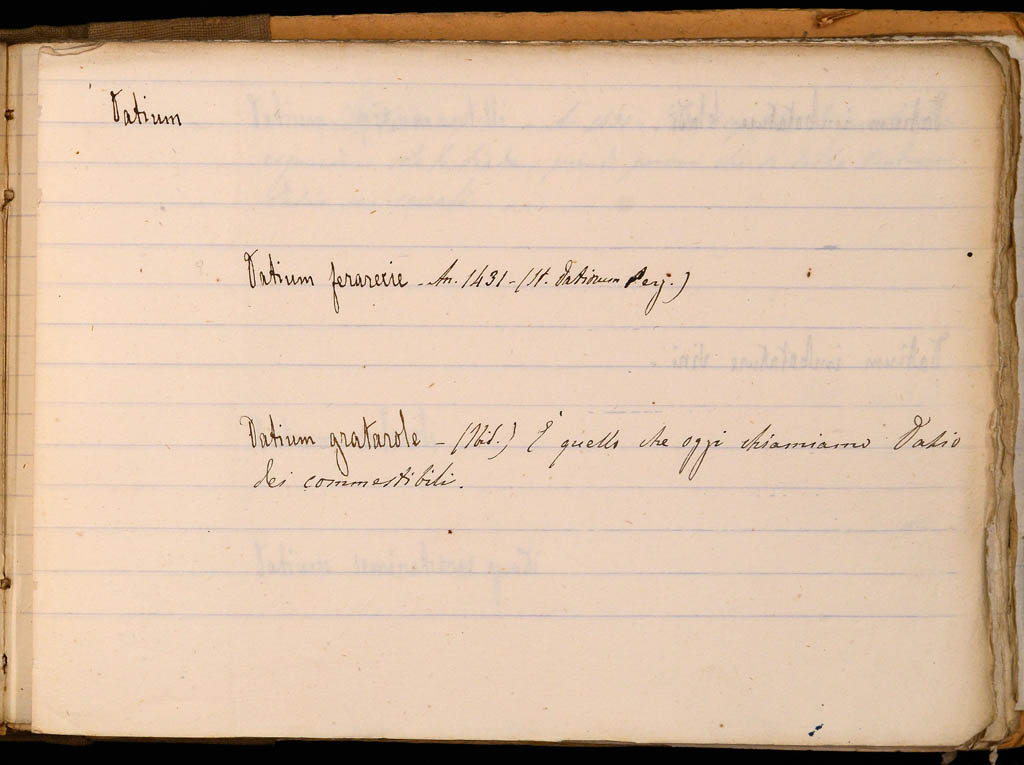 Datium
Datium ferarecie - An. 1431 - (St. Datiorum Perg.)
Datium gratarole - (Ibid.) È quello che oggi chiamiamo Dazio
dei commestibili.